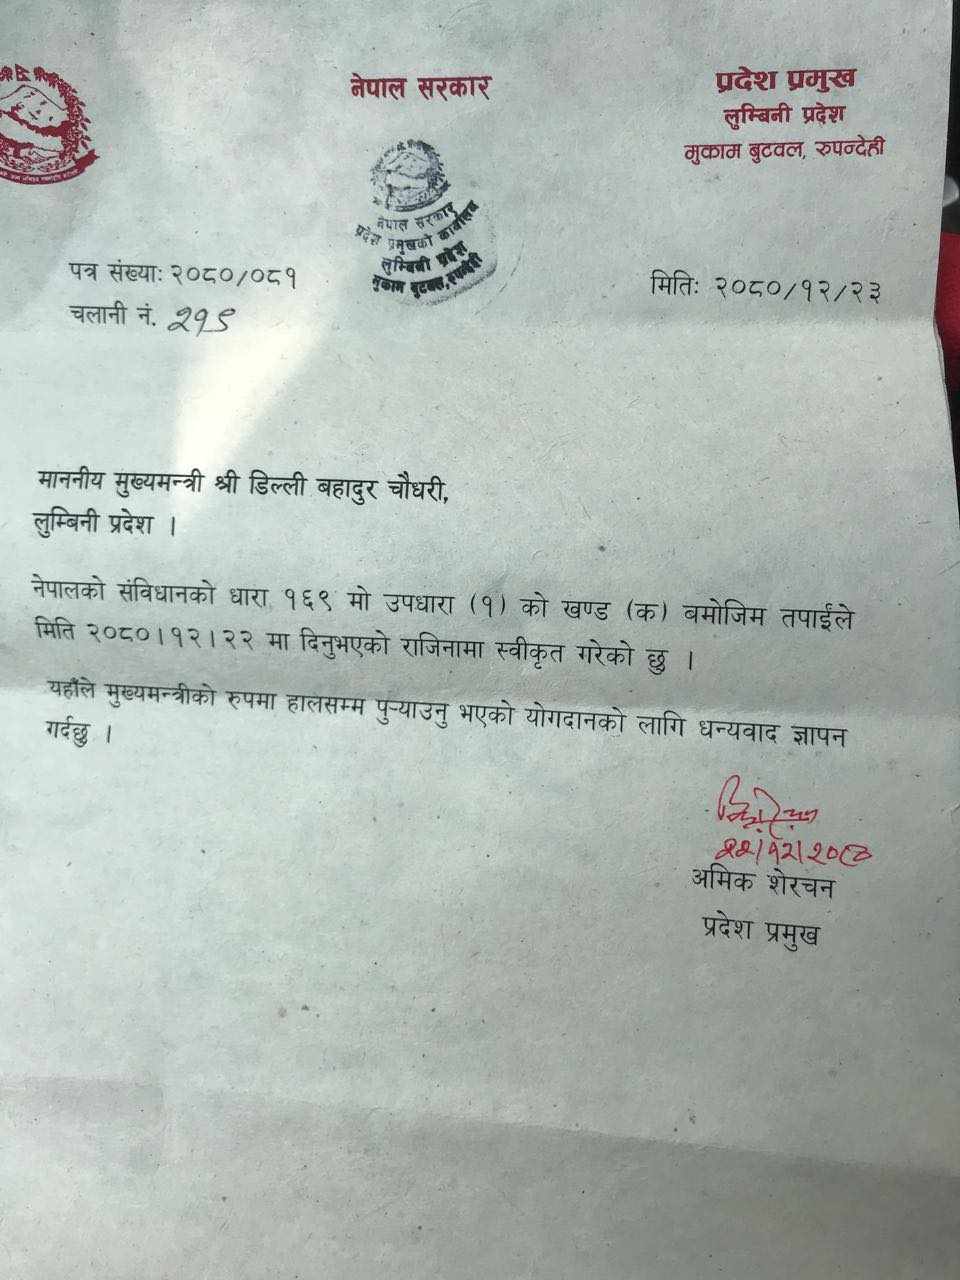 नेपाल सरकार
प्रदेश प्रमुख
लुम्बिनी प्रदेश
मुकाम बुटवल, रुपन्देही
नेपाल सरकार
प्रदेश प्रमुखको कार्यालय
लुम्बिनी प्रदेश
मुकाम बुटवल, रुपन्देही
पत्र संख्याः २०८०/०८१
चलानी नं. २१९
मितिः २०८०/१२/२३
माननीय मुख्यमन्त्री श्री डिल्ली बहादुर चौधरी,
लुम्बिनी प्रदेश ।
नेपालको संविधानको धारा १६९ मो उपधारा (१) को खण्ड (क) बमोजिम तपाईंले
मिति २०८०।१२।२२ मा दिनुभएको राजिनामा स्वीकृत गरेको छु ।
यहाँले मुख्यमन्त्रीको रुपमा हालसम्म पुर्‍याउनु भएको योगदानको लागि धन्यवाद ज्ञापन
गर्दछु ।
अमिक शेरचन
प्रदेश प्रमुख